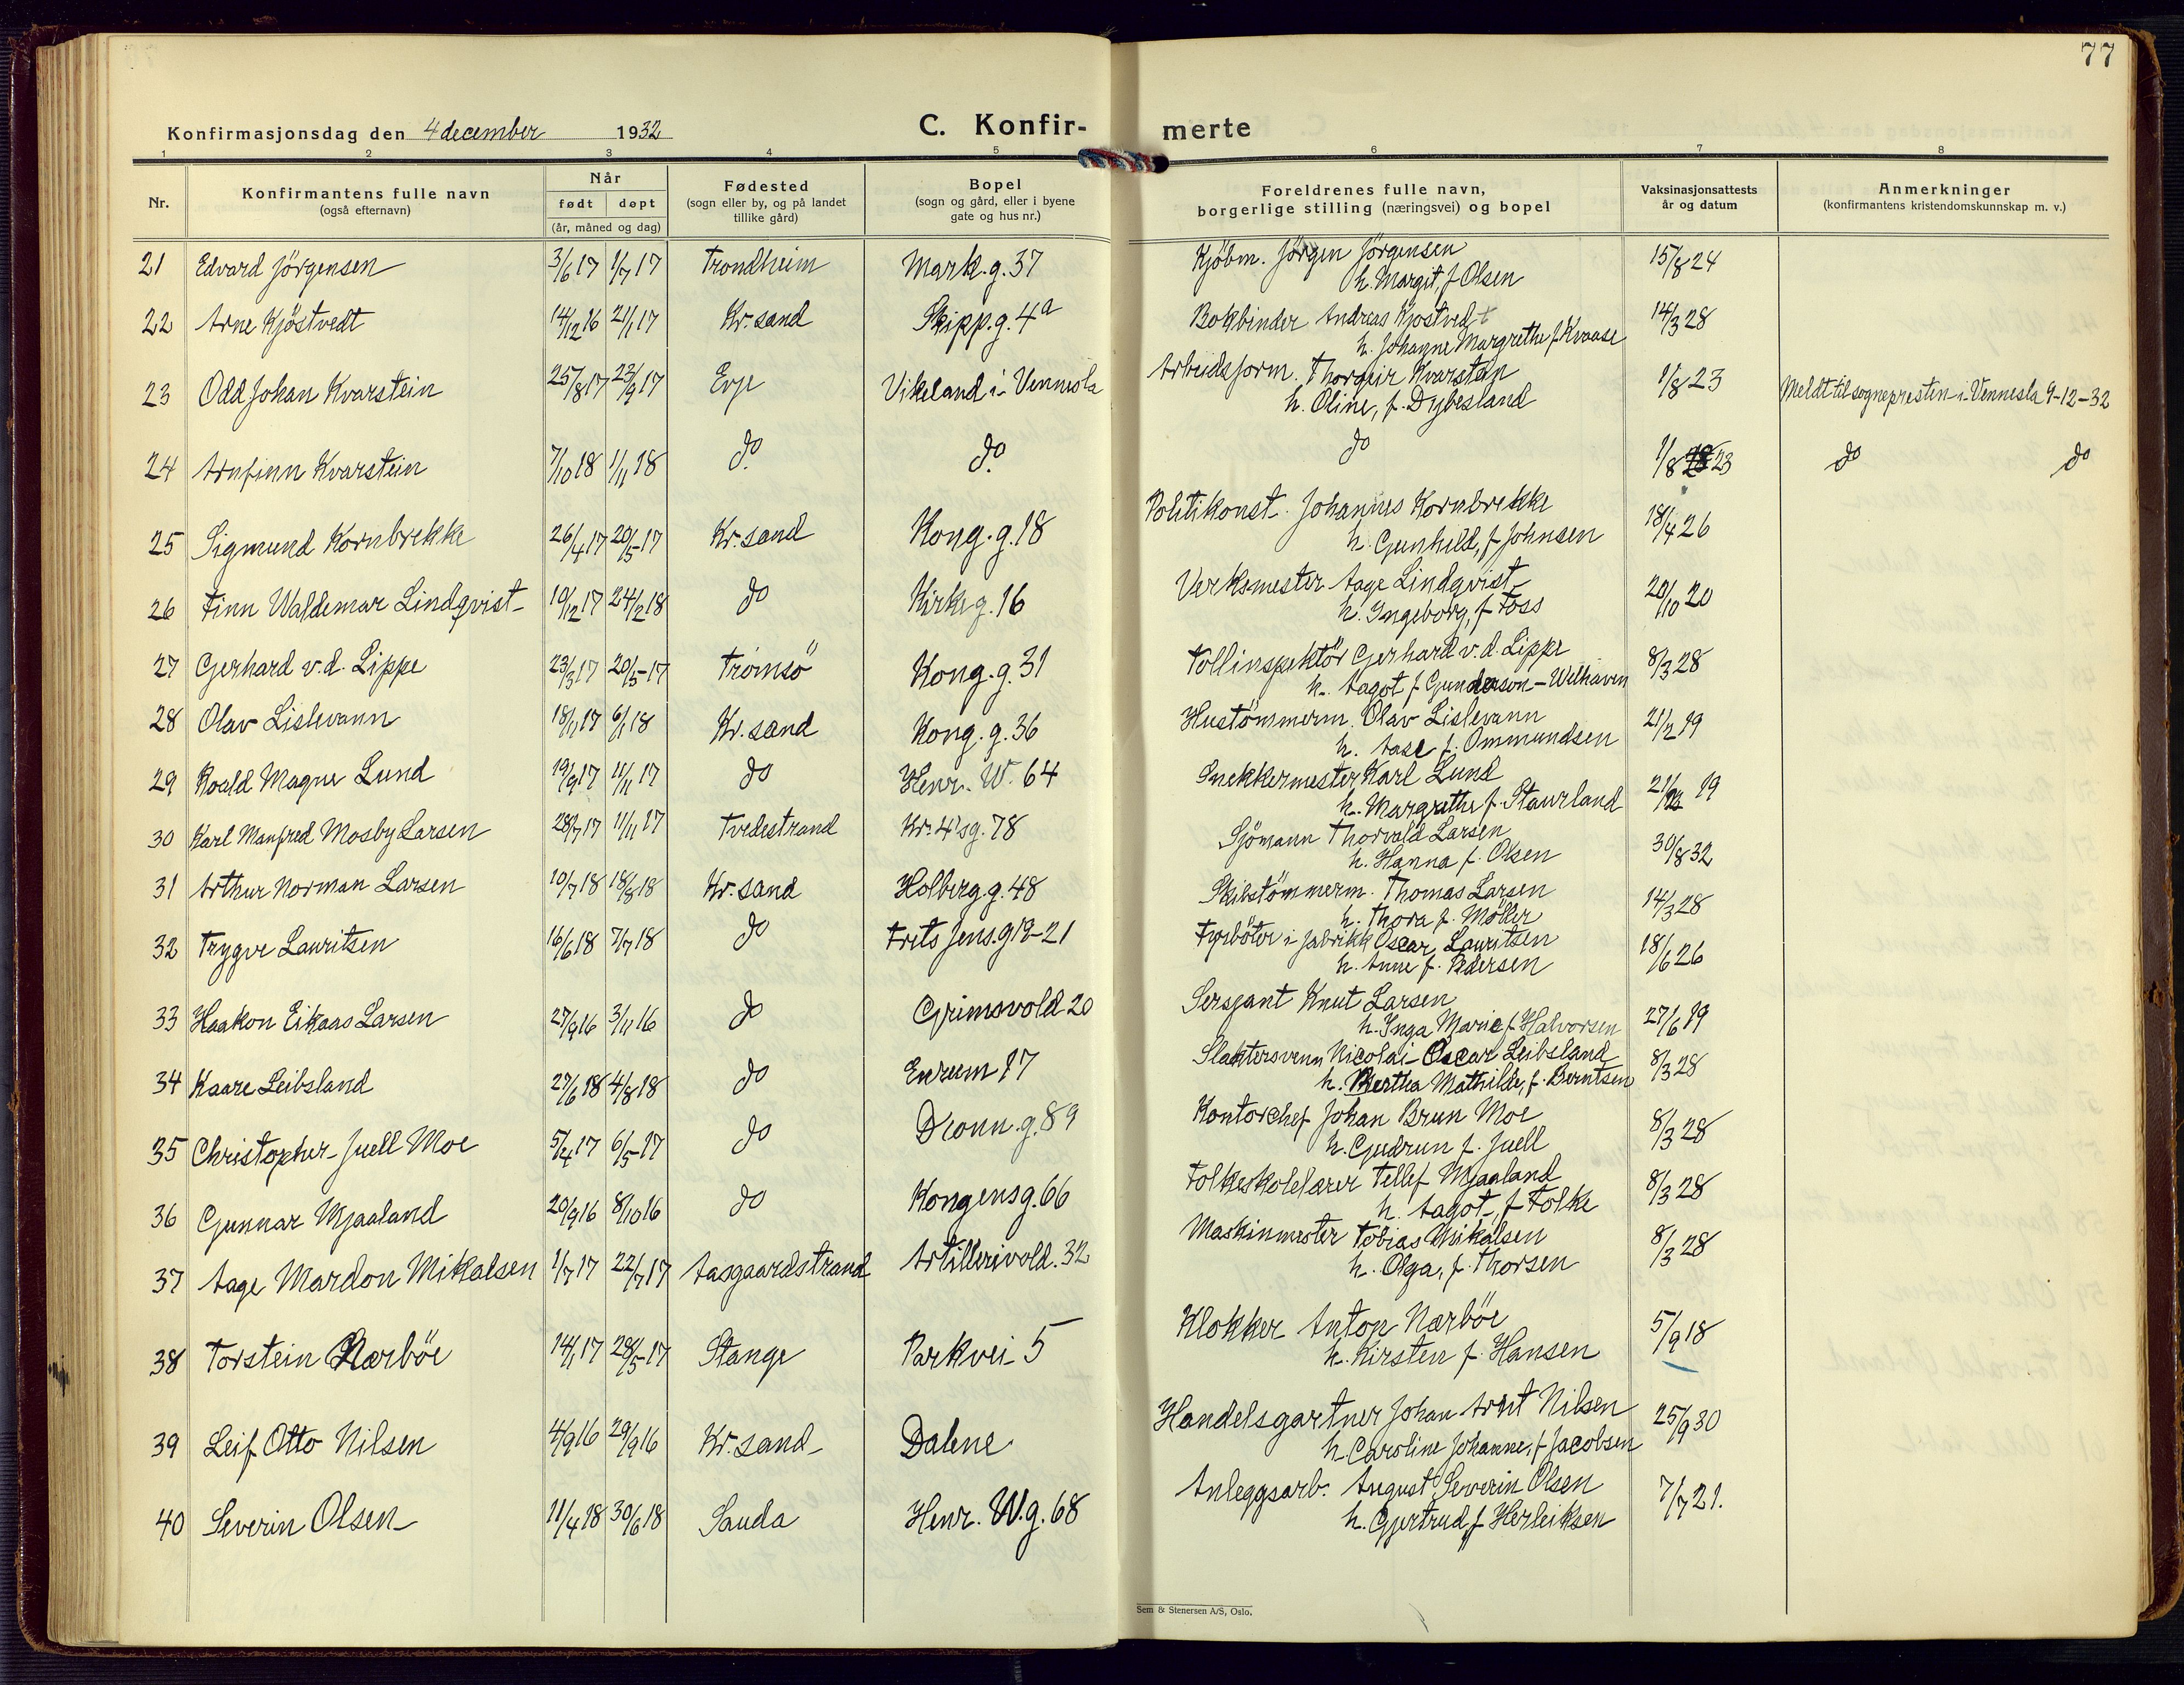 77
Konfirmasjonsdag den 4 december 1932 C. Konfir- merte
1 2 3 4 5 6 7 8
Nr. Konfirmantens fulle navn (også efternavn) Når født døpt (år, måned og dag) Fødested (sogn eller by, og på landet tillike gård) Bopel (sogn og gård, eller i byene gate og hus nr.) Foreldrenes fulle navn, borgerlige stilling (næringsvei) og bopel Vaksinasjonsattests år og datum Anmerkninger (konfirmantens kristendomskunnskap m. v.)
21 Edvard Jörgensen 3/6 17 1/7 17 Trondheim Mark.g. 37 Kjöbm. Jörgen Jörgensen 15/8 24
h. Margit, f Olsen
22 Arne Kjöstvedt 14/12 16 21/1 17 Kr.sand Skipp.g. 4a Bokbinder Andreas Kjostvedt 14/3 28
h. Johanne Margrethe f Kvaase
23 Odd Johan Kvarstein 25/8 17 23/9 17 Evje Vikeland i Vennesla Arbeidsform. Thorgeir Kvarstein 1/8 23 Meldt til sognepresten i Vennesla 9-12-32
h. Oline, f. Dybesland
24 Arnfinn Kvarstein 7/10 18 1/11 18 do do do 1/8 23 do do
25 Sigmund Kornbrekke 26/4 17 20/5 17 Kr.sand Kong.g. 18 Politikonst. Johannes Kornbrekke 18/4 26
h. Gunhild, f Johnsen
26 Finn Waldemar Lindqvist 10/12 17 24/2 18 do Kirkeg. 16 Verksmester Aage Lindqvist 20/10 20
h. Ingeborg, f Foss
27 Gerhard v.d. Lippe 23/3 17 20/5 17 Tromsö Kong.g. 31 Tollinspektör Gerhard v.d. Lippe 8/3 28
h. Aagot f Gunderson-Welhaven
28 Olav Lislevann 18/11 17 6/1 18 Kr.sand Kong.g. 36 Hustömmerm. Olav Lislevann 21/2 19
h. Aase f. Ommundsen
29 Roald Magne Lund 19/9 17 11/11 17 do Henr. W. 64 Snekkermester Karl Lund 21/2 19
h. Margrethe f. Staurland
30 Karl Manfred Mosby Larsen 28/7 17 11/11 17 Tvedestrand Kr. 4's g. 78 Sjömann Thorvald Larsen 30/8 32
h. Hanna f. Olsen
31 Arthur Norman Larsen 10/7 18 18/8 18 Kr.sand Holberg.g. 48 Skibstömmerm. Thomas Larsen 14/3 28
h. Thora f. Möller
32 Trygve Lauritsen 16/6 18 7/7 18 do Frits Jens.g 19-21 Fyrböter i fabrikk Oscar Lauritsen 18/6 26
h. Anne f. Pedersen
33 Haakon Eikaas Larsen 27/9 16 3/11 16 do Grimsvold 20 Sersjant Knut Larsen 27/6 19
h. Inga Marie f Halvorsen
34 Kaare Leibsland 27/6 18 4/8 18 do Enrum 17 Slaktersvenn Nicolai Oscar Leibsland 8/3 28
h. Bertha Mathilde, f. Berntsen
35 Christopher Juell Moe 5/4 17 6/5 17 do Dronn.g. 89 Kontorchef Johan Brun Moe 8/3 28
h. Gudrun f. Juell
36 Gunnar Mjaaland 20/9 16 8/10 16 do Kongensg. 66 Folkeskolelærer Tellef Mjaaland 8/3 28
h. Aagot, f Folke
37 Aage Mardon Mikalsen 1/7 17 22/7 17 Aasgaardstrand Artillerivold. 32 Maskinmester Tobias Mikalsen 8/3 28
h. Olga, f. Thorsen
38 Torstein Nærböe 14/1 17 28/5 17 Stange Parkvei 5 Klokker Anton Nærböe 5/9 18
h. Kirsten f. Hansen
39 Leif Otto Nilsen 4/9 16 29/9 16 Kr.sand Dalene Handelsgartner Johan Arnt Nilsen 25/9 30
h. Caroline Johanne, f Jacobsen
40 Severin Olsen 11/4 18 30/6 18 Sauda Henr. W.g. 68 Anleggsarb. August Severin Olsen 7/7 21.
h. Gjertrud, f Herleiksen
Sem & Stenersen A/S, Oslo.